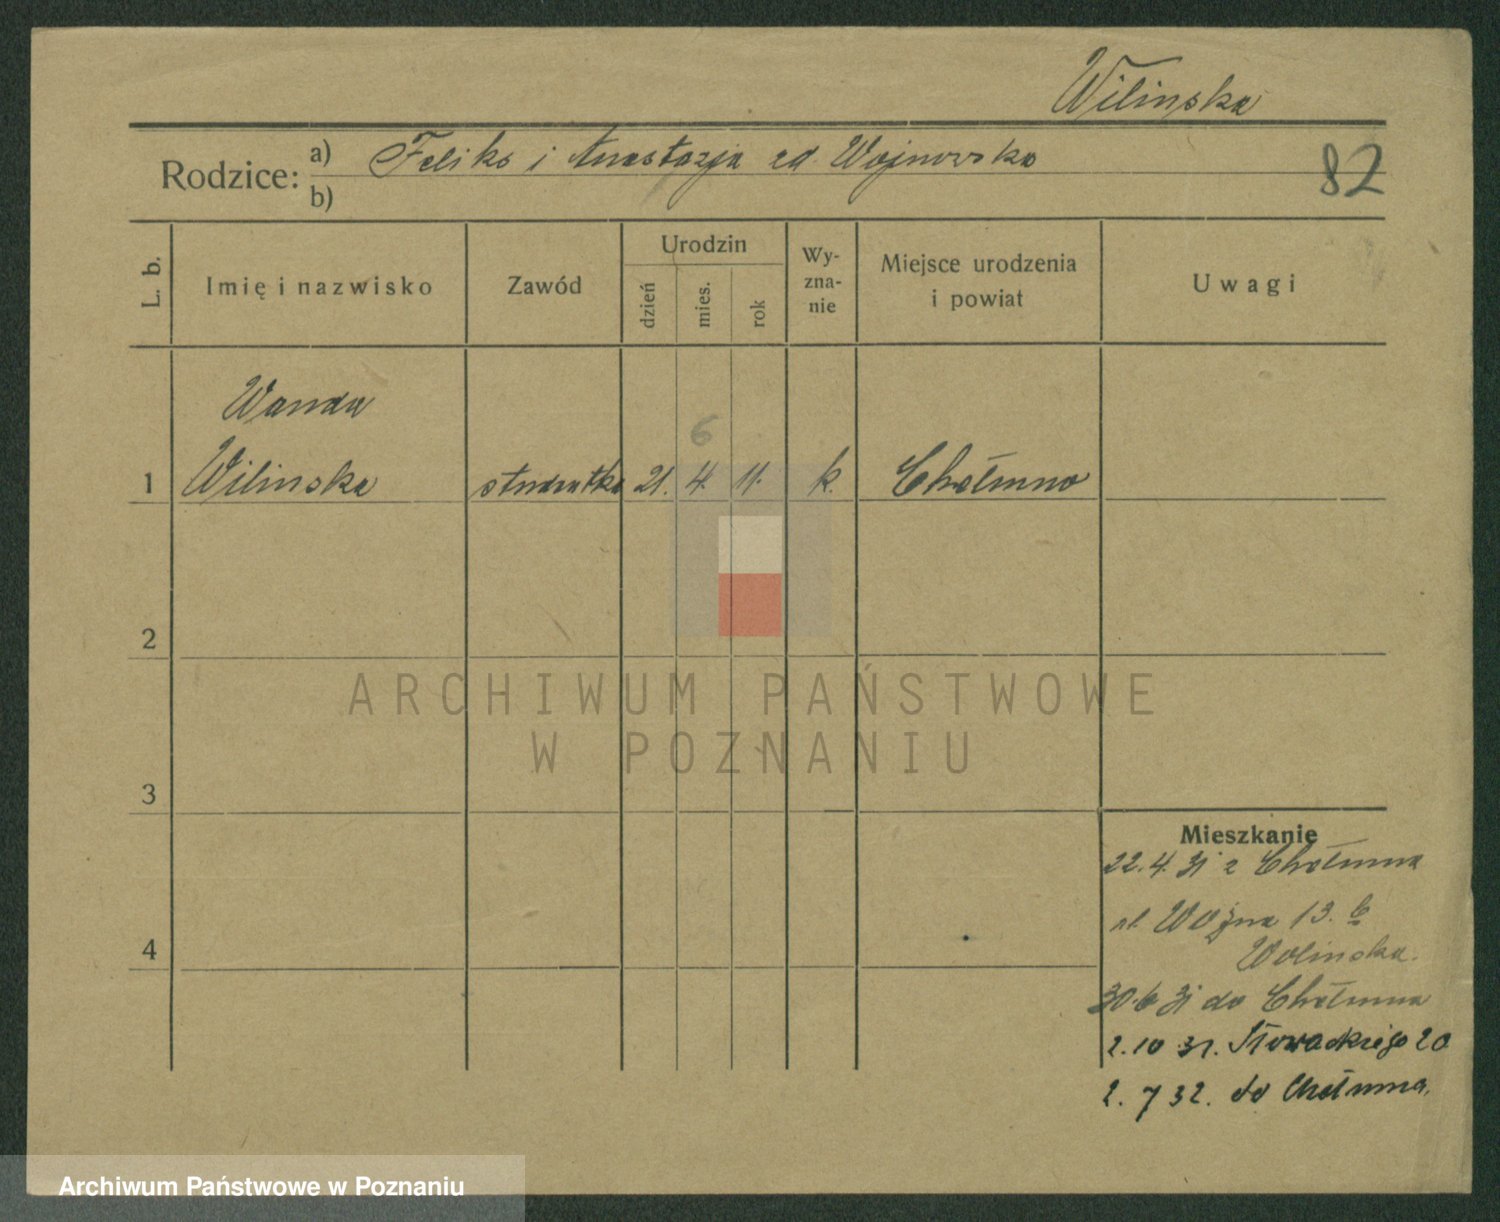 Wilinska
Rodzice: a) Feliks i Anastazja zd. Wojnowska
b)
82
L. b.
Imię i nazwisko
Zawód
Urodzin
dzień
mies.
rok
Wy-
zna-
nie
Miejsce urodzenia
i powiat
Uwagi
Wanda
6
1 Wilinska studentka 21. 4. 11. k. Chełmno
2
ARCHIWUM PAŃSTWOWE
W POZNANIU
3
4
Mieszkanie
22.4.31 z Chełmna
ul. Woźna 13. b
Wolinska.
30.6 31 do Chełmna
2.10 31. Słowackiego 20
2. 7 32. do Chełmna.
Archiwum Państwowe w Poznaniu